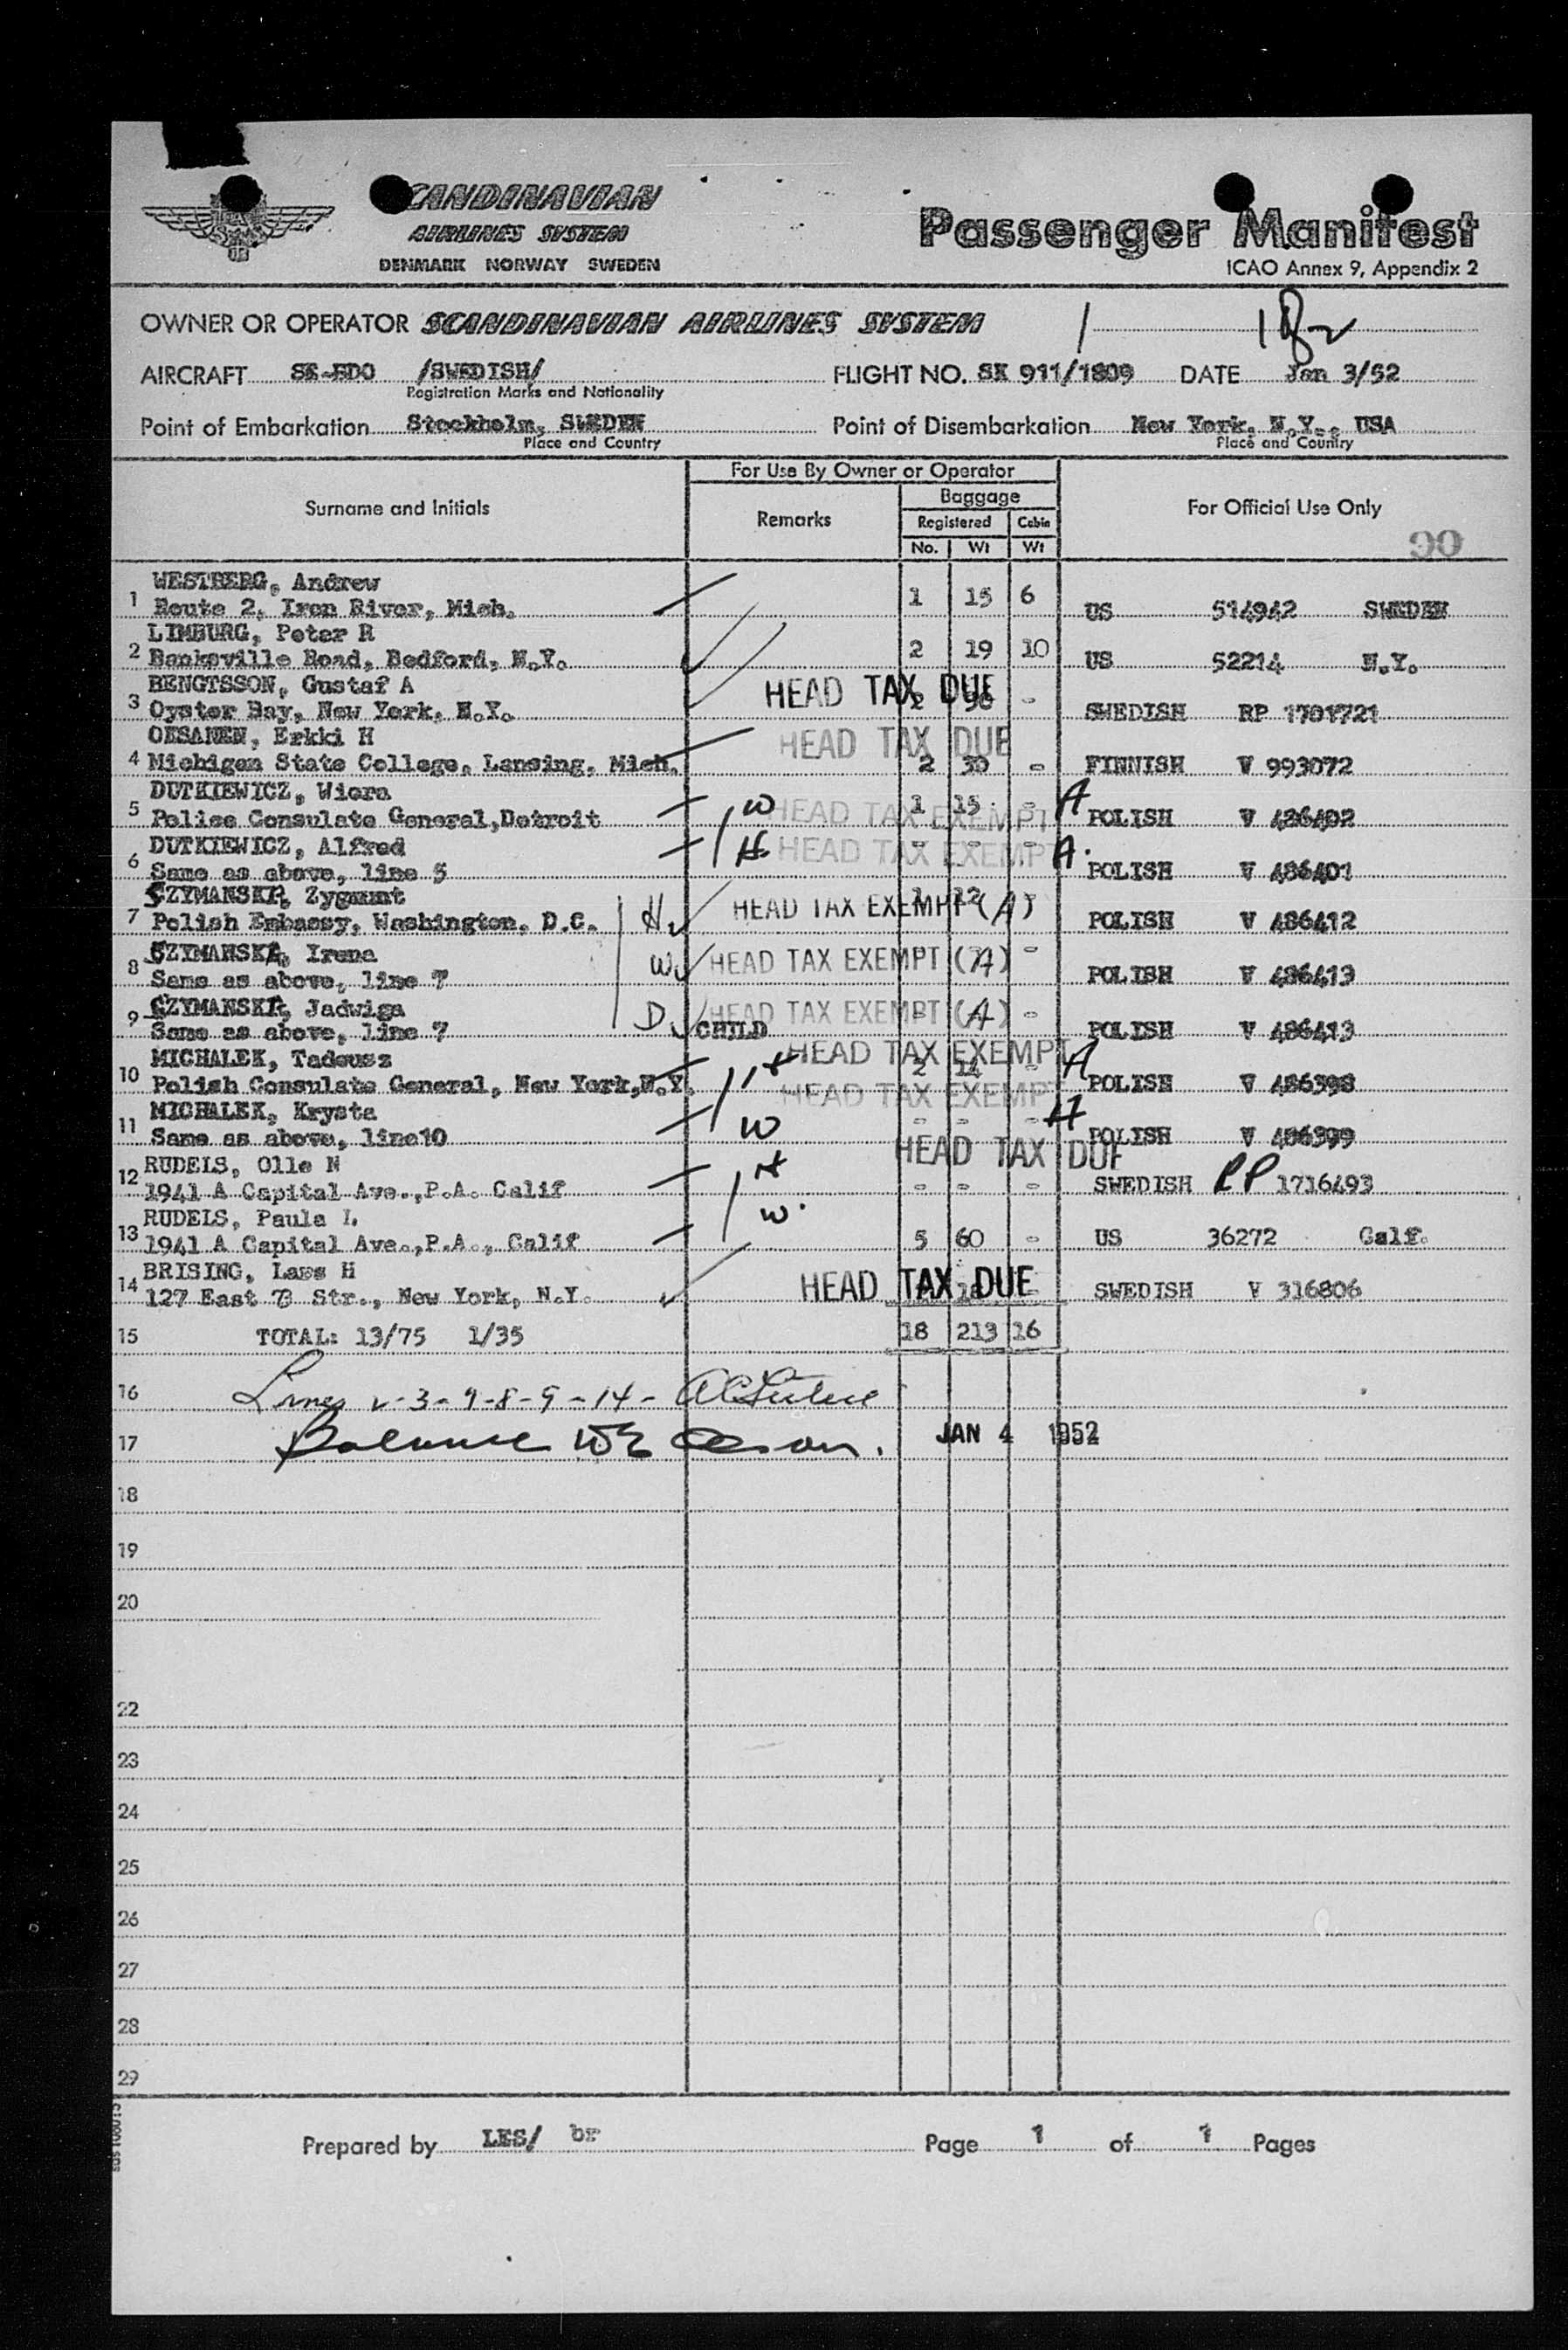 SCANDINAVIAN
AIRLINES SYSTEM
DENMARK NORWAY SWEDEN
Passenger Manifest
ICAO Annex 9, Appendix 2
OWNER OR OPERATOR SCANDINAVIAN AIRLINES SYSTEM
AIRCRAFT SE-BDO /SWEDISH/ FLIGHT NO. SK 911/1809 DATE Jan 3/52
Registration Marks and Nationality
Point of Embarkation Stockholm, SWEDEN Point of Disembarkation New York, N.Y., USA
Place and Country Place and Country
For Use By Owner or Operator
Surname and Initials Remarks Baggage For Official Use Only
Registered Cabin
No. Wt Wt
WESTBERG, Andrew
1 Route 2, Iron River, Mich. 1 15 6 US 514942 SWEDEN
LIMBURG, Peter R
2 Banksville Road, Bedford, N.Y. 2 19 10 US 52214 N.Y.
BENGTSSON, Gustaf A
3 Oyster Bay, New York, N.Y. HEAD TAX DUE 2 - SWEDISH RP 1701721
OKSANEN, Erkki H HEAD TAX DUE
4 Michigan State College, Lansing, Mich. 2 30 - FINNISH V 993072
DUTKIEWICZ, Wiera
5 Polise Consulate General,Detroit W HEAD TAX EXEMPT 1 15 - A POLISH V 486402
DUTKIEWICZ, Alfred
6 Same as above, line 5 H. HEAD TAX EXEMPT - - - A. POLISH V 486401
SZYMANSKI, Zygmunt
7 Polish Embassy, Washington, D.C. H HEAD TAX EXEMPT (A) 1 12 - POLISH V 486412
SZYMANSKA, Irena
8 Same as above, line 7 W HEAD TAX EXEMPT (A) - POLISH V 486413
SZYMANSKA, Jadwiga
9 Same as above, line 7 D CHILD HEAD TAX EXEMPT (A) - - POLISH V 486413
MICHALEK, Tadeusz HEAD TAX EXEMPT
10 Polish Consulate General, New York,N.Y. H 2 - A POLISH V 486398
MICHALEK, Krysta HEAD TAX EXEMPT
11 Same as above, line10 W - - - A POLISH V 486399
RUDELS, Olle N H HEAD TAX DUE
12 1941 A Capital Ave.,P.A. Calif - - - SWEDISH RP 1716493
RUDELS, Paula I. W.
13 1941 A Capital Ave.,P.A., Calif 5 60 - US 36272 Calf.
BRISING, Lars H
14 127 East 73 Str., New York, N.Y. HEAD TAX DUE - SWEDISH V 316806
15 TOTAL: 13/75 1/35 18 213 16
16 Lines 2-3-7-8-9-14-
17 Balance JAN 4 1952
18
19
20
22
23
24
25
26
27
28
29
Prepared by LES/ br Page 1 of 1 Pages